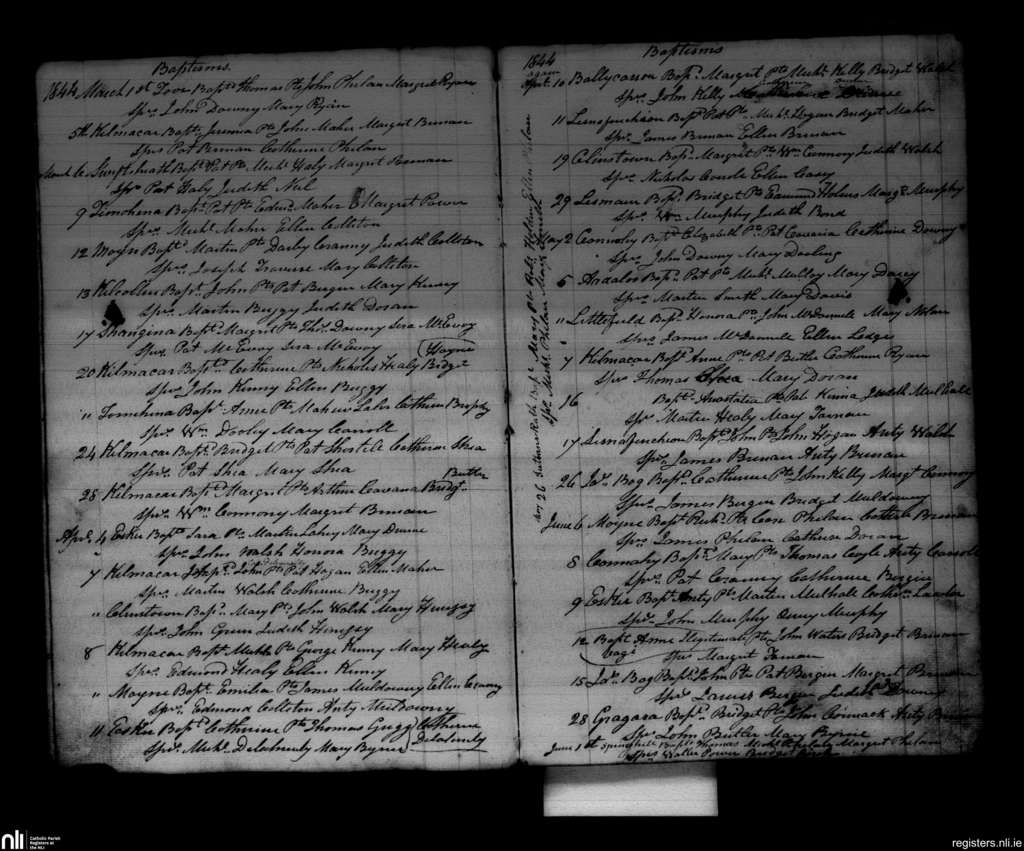 Baptisms.
1844 March 1st Toor Bapt. Thomas Pts John Phelan Margret Ryan
Spr. John Downy Mary Ryan
5th Kilmacar Bapt. Jeremia Pts John Maher Margret Brenan
Sprs Pat Brenan Catherine Phelan
March 6 Bapt. Pat Pts Michl. Healy Margret Brenan
Spr. Pat Healy Judith Neil
9 Bapt. Pat Pts Edwd. Maher & Margret Power
Spr. Michl. Maher Ellen Colleton
12 Moyn Bapt. Martin Pts Darby Cranny Judith Colleton
Spr. Joseph Mary Colleton
13 Bapt. John Pts Pat Bergin Mary
Spr. Martin Buggy Judith Doran
17 Shangina Bapt. Margret Pts Thos. Downy Sera McEvoy
Sprs. Pat McEvoy Sera McEvoy
Hayne
20 Kilmacar Bapt. Catherine Pts Nicholas Healy Bridget
Spr. John Kenny Ellen Buggy
" Bapt. Anne Pts Mahew Lalor Catherine Brophy
Spr. Wm. Dooley Mary Carroll
24 Kilmacar Bapt. Bridget Pts Pat Catherine Shea
Spr. Pat Shea Mary Shea
Butler
28 Kilmacar Bapt. Margret Pts Arthur Cavana Bridgt.
Spr. Wm. Connory Margret Brenan
Aprl. 4 Esker Bapt. Sara Pts Martin Lahey Mary Dunne
Spr. John Walsh Honora Buggy
7 Kilmacar Bapt. John Pts Pat Hogan Ellen Maher
Spr. Martin Walsh Catherine Buggy
" Clinstown Bapt. Mary Pts. John Walsh Mary
Spr. John Judith
8 Kilmacar Bapt. Michl. Pts George Kenny Mary Healy
Spr. Edmond Healy Ellen Kenny
" Moyne Bapt. Emilia Pts James Muldowny Ellen
Spr. Edmond Colleton Anty Muldowny
11 Esker Bapt. Catherine Pts Thomas Catherine
Spr. Michl. Delahunty Mary Byrne Delahunty
Nov 26 Bapt. Pts Ellen Phelan
Spr. Michl. Phelan Mary Smith
1844
Baptisms
again
Aprl. 10 Ballycarron Bapt. Margret Pts Michl. Kelly Bridget Walsh
Spr. John Kelly
11 Bapt. Pat Pts. Michl. Hogan Bridget Maher
Spr. James Brenan Ellen Brenan
19 Celinstown Bapt. Margret Pts Wm Connory Judith Walsh
Spr. Nicholas Ellen Casey
29 Lismaun Bapt. Bridget Pts Edmund Holens Margt. Murphy
Spr. Wm Murphy Judith Bond
May 2 Connahy Bapt. Elizabeth Pts Pat Cavana Catherine Downy
Spr. John Downy Mary Dooling
5 Bapt. Pat Pts Michl. Mulloy Mary Darcy
Spr. Martin Smith Mary Davis
" Littlefield Bapt. Honora Pts John McDonnele Mary Nolan
Sprs James McDonnele Ellen Ledge
7 Kilmacar Bapt. Anne Pts Pat Butler Catherine Ryan
Spr Thomas Shea Mary Doran
16 Bapt. Anastatia Pts Pat Judith
Spr. Martin Healy Mary
17 Bapt. John Pts John Hogan Anty Walsh
Spr. James Brenan Anty Brenan
26 Jas. Bog Bapt. Catherine Pts John Kelly Margt Connory
Spr. James Bergin Bridget Muldowny
June 6 Moyne Bapt. Richd. Pts Phelan Brenan
Sprs. James Phelan Catherine Doran
8 Connahy Bapt. Mary Pts Thomas Coyle Anty Carroll
Spr. Pat Cranny Catherine Bergin
9 Esker Bapt. Anty Pts Martin Mulhall Cathrn. Lawler
Spr. John Murphy Murphy
12 Bapt Anne Illegitimate Pts John Water Bridget Brenan
Spr Margret
15 Jas. Bog Bapt. John Pts Pat Bergin Margret Brenan
Spr James Bergin Judith Downy
28 Gragara Bapt. Bridget Pts John Cormack Anty
Spr John Butler Mary Byrne
June 1st Springhill Bapt. Thomas Margret Phelan
Sprs Walter Power Bridget
nli Catholic Parish Registers at the NLI
registers.nli.ie